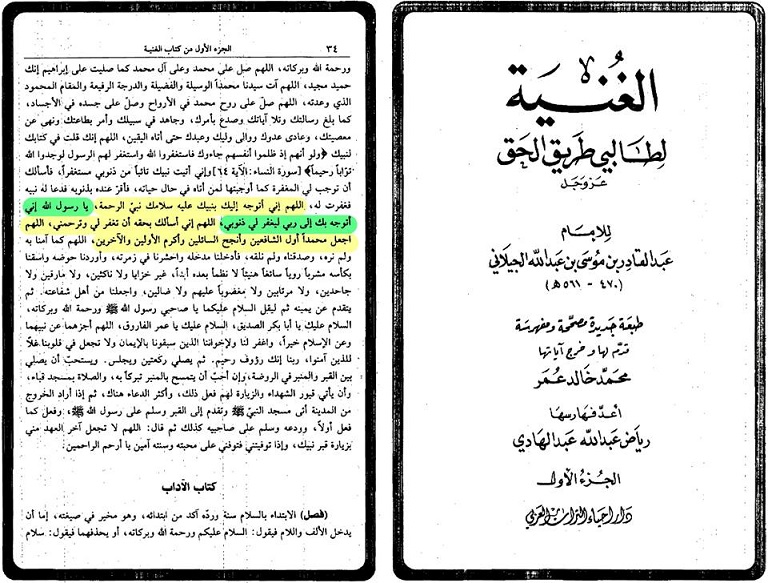 الغُنيَة
لطالبي طريق الحق
عز وجل
للإمام
عبدالقادر بن موسى بن عبدالله الجيلاني
(٤٧٠ - ٥٦١ هـ)
طبعة جديدة مصححة ومفهرسة
قدم لها وخرج آياتها
محمد خالد عمر
أعد فهارسها
رياض عبدالله عبدالهادي
الجزء الأول
دار إحياء التراث العربي
٣٤ الجزء الأول من كتاب الغنية
ورحمة الله وبركاته، اللهم صل على محمد وعلى آل محمد كما صليت على إبراهيم إنك
حميد مجيد، اللهم آت سيدنا محمداً الوسيلة والفضيلة والدرجة الرفيعة والمقام المحمود
الذي وعدته، اللهم صلّ على روح محمد في الأرواح وصلّ على جسده في الأجساد،
كما بلغ رسالتك وتلا آياتك وصدع بأمرك، وجاهد في سبيلك وأمر بطاعتك ونهى عن
معصيتك، وعادى عدوك ووالى وليك وعبدك حتى أتاه اليقين، اللهم إنك قلت في كتابك
لنبيك ﴿ولو أنهم إذ ظلموا أنفسهم جاءوك فاستغفروا الله واستغفر لهم الرسول لوجدوا الله
تواباً رحيماً﴾ [سورة النساء: الآية ٦٤] وإني أتيت نبيك تائباً من ذنوبي مستغفراً، فأسألك
أن توجب لي المغفرة كما أوجبتها لمن أتاه في حال حياته، فأقرّ عنده بذنوبه فدعا له نبيه
فغفرت له، اللهم إني أتوجه إليك بنبيك عليه سلامك نبي الرحمة، يا رسول الله إني
أتوجه بك إلى ربي ليغفر لي ذنوبي، اللهم إني أسألك بحقه أن تغفر لي وترحمني، اللهم
اجعل محمداً أول الشافعين وأنجح السائلين وأكرم الأولين والآخرين، اللهم كما آمنا به
ولم نره، وصدقناه ولم نلقه، فأدخلنا مدخله واحشرنا في زمرته، وأوردنا حوضه واسقنا
بكأسه مشرباً روياً سائغاً هنيئاً لا نظمأ بعده أبداً، غير خزايا ولا ناكثين، ولا مارقين ولا
جاحدين، ولا مرتابين ولا مغضوباً عليهم ولا ضالين، واجعلنا من أهل شفاعته. ثم
يتقدم عن يمينه ثم ليقل السلام عليكما يا صاحبي رسول الله ﷺ ورحمة الله وبركاته،
السلام عليك يا أبا بكر الصديق، السلام عليك يا عمر الفاروق، اللهم أجزهما عن نبيهما
وعن الإسلام خيراً، واغفر لنا ولإخواننا الذين سبقونا بالإيمان ولا تجعل في قلوبنا غلاً
للذين آمنوا، ربنا إنك رؤوف رحيم. ثم يصلي ركعتين ويجلس. ويستحبّ أن يصلي
بين القبر والمنبر في الروضة، وإن أحبّ أن يتمسح بالمنبر تبركاً به، والصلاة بمسجد قباء،
وأن يأتي قبور الشهداء والزيارة لهم فعل ذلك، وأكثر الدعاء هناك، ثم إذا أراد الخروج
من المدينة أتى مسجد النبيّ ﷺ وتقدم إلى القبر وسلم على رسول الله ﷺ، وفعل كما
فعل أولاً، وودعه وسلم على صاحبيه كذلك ثم قال: اللهم لا تجعل آخر العهد مني
بزيارة قبر نبيك، وإذا توفيتني فتوفني على محبته وسنته آمين يا أرحم الراحمين.
كتاب الآداب
(فصل) الابتداء بالسلام سنة ورده آكد من ابتدائه، وهو مخير في صيغته، إما أن
يدخل الألف واللام فيقول: السلام عليكم ورحمة الله وبركاته، أو يحذفهما فيقول: سلام